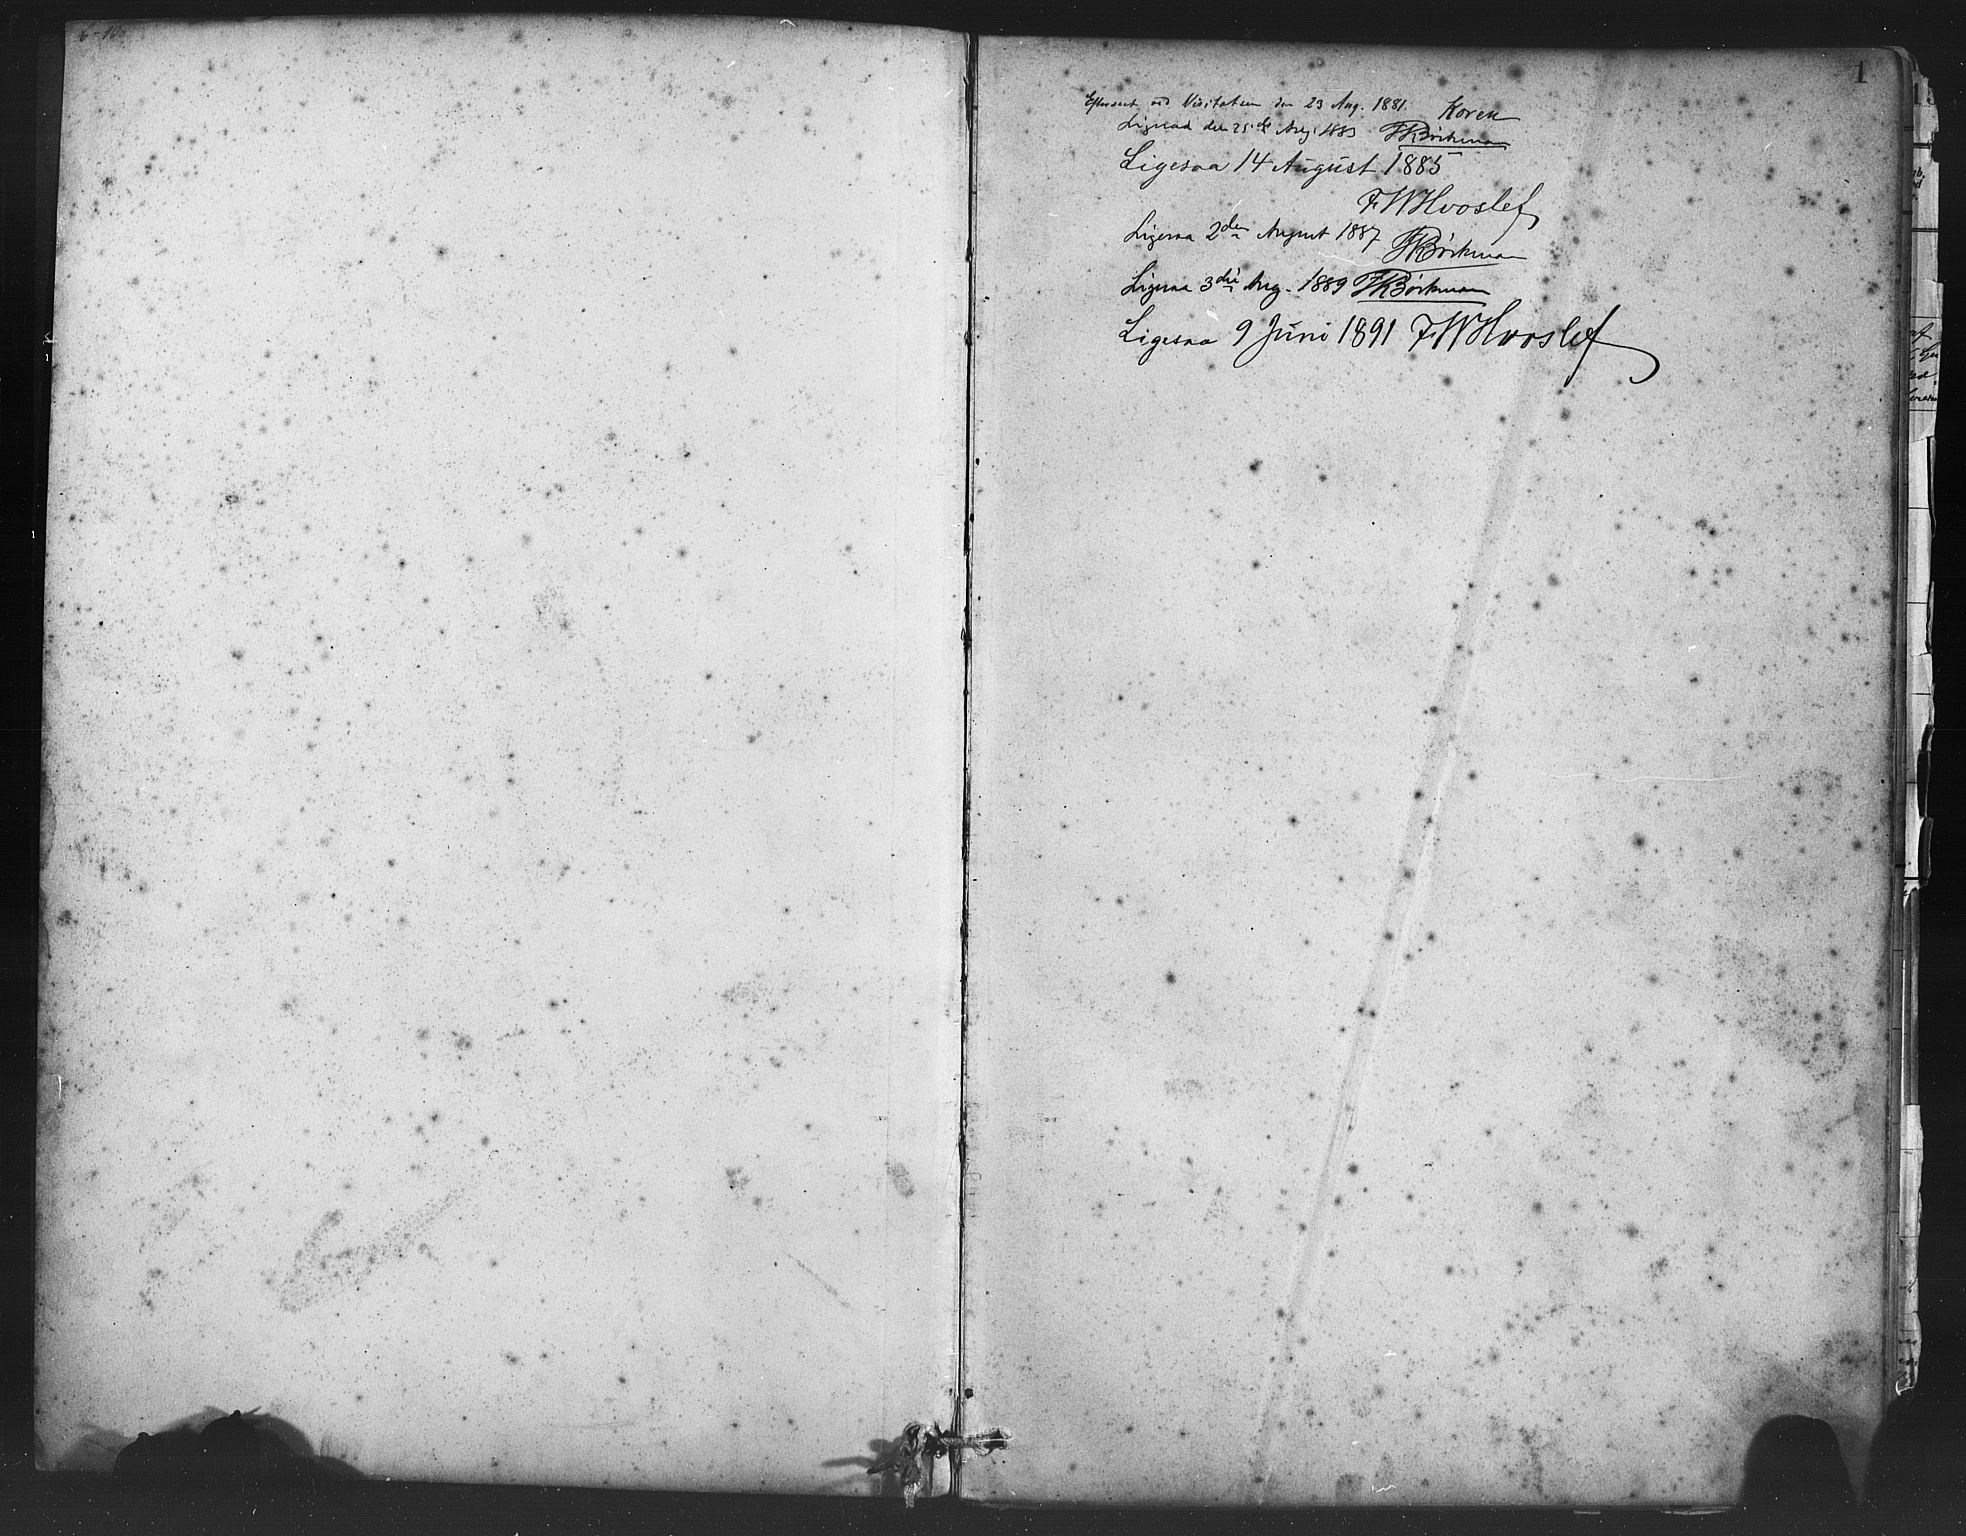 1
Efterseet ved Visitatsen den 23 Aug. 1881. Koren
Ligesaa den 25de Aug. 1883 FRBöckman
Ligesaa 14 August 1885
F.W.Hvoslef
Ligesaa 2den August 1887 FRBöckman
Ligesaa 3die Aug. 1889 FRBöckman
Ligesaa 9 Juni 1891 F.W.Hvoslef